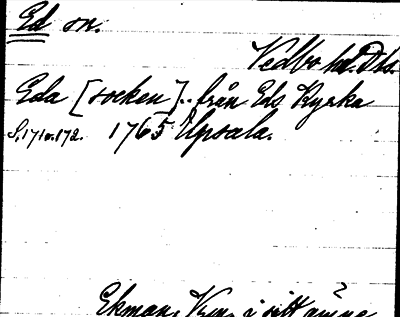 Ed sn.
Vedbo hd. Dls.
Eda [socken].. från Eds Kyrka
S. 171 o. 172. 1765 Upsala.
Ekman, i sitt ämne